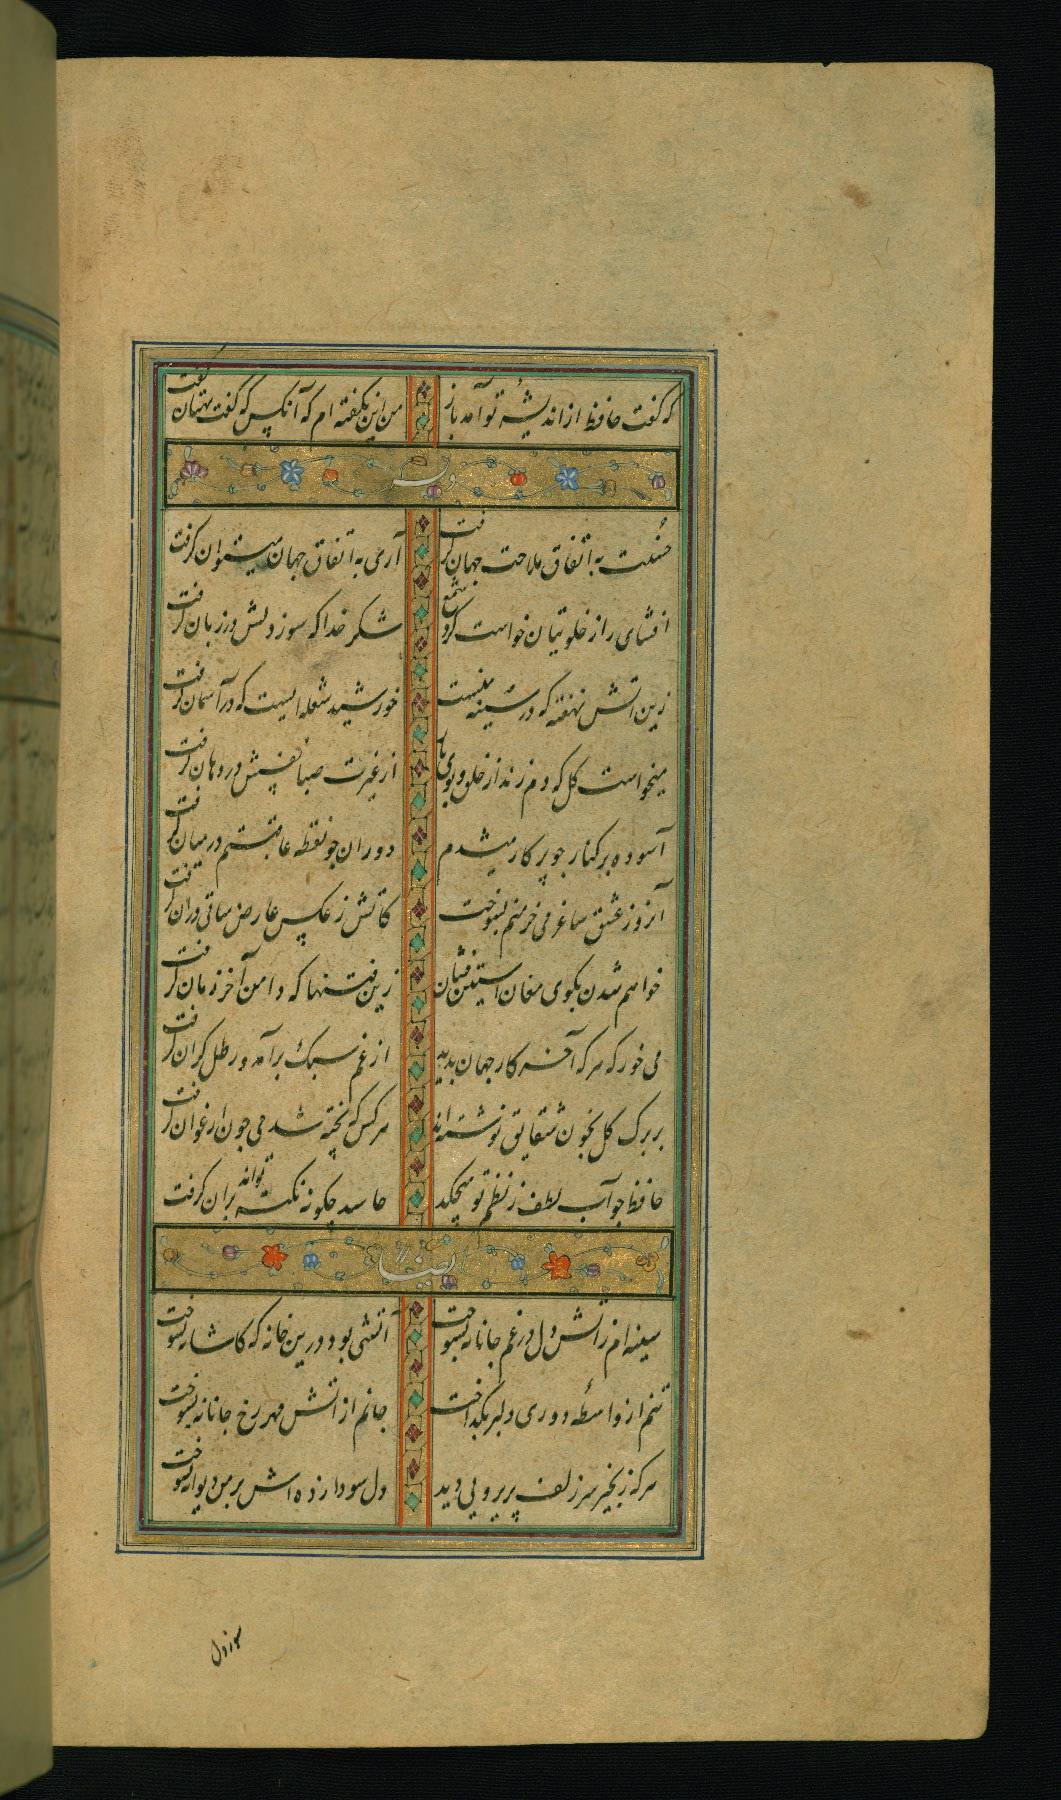 که گفت حافظ از اندیشهٔ تو آمد باز من این نگفته ام که آنکس که گفت بهتان گفت
وله
حسنت به اتفاق ملاحت جهان گرفت آری به اتفاق جهان میتوان گرفت
افشای راز خلوتیان خواست کرد شمع شکر خدا که سوز دلش در زبان گرفت
زین اتش نهفته که در سینه منست خورشید شعله ایست که در آسمان گرفت
میخواست کل که دم زند از خلق و بوی یار از غیرت صبا نفسش در دهان گرفت
آسوده بر کنار جو پرکار میشدم دوران جو نقطه عاقبتم در میان گرفت
آنروز عشق ساغر می خرمنم بسوخت کاتش ز عکس عارض ساقی دران گرفت
خواهم شدن بکوی مغان استین فشان زین فتنها که دامن آخر زمان گرفت
می خور که هرکه آخر کار جهان بدید از غم سبک برآمد و رطل کران گرفت
بر برک کل بخون شقایق نوشته اند هرکس که پخته شد می جون ارغوان گرفت
حافظ جو آب لطف ز نظم تو میچکد حاسد چکونه نکته تواند بران گرفت
ایضا
سینه ام ز اتش دل در غم جانانه بسوخت آتشی بود درین خانه که کاشانه بسوخت
تنم از واسطهٔ دوری دلبر بکداخت جانم از اتش مهر رخ جانانه بسوخت
هرکه زنجیر سر زلف پریرویی دید دل سودا زده اش بر من دیوانه بسوخت
سوز دل